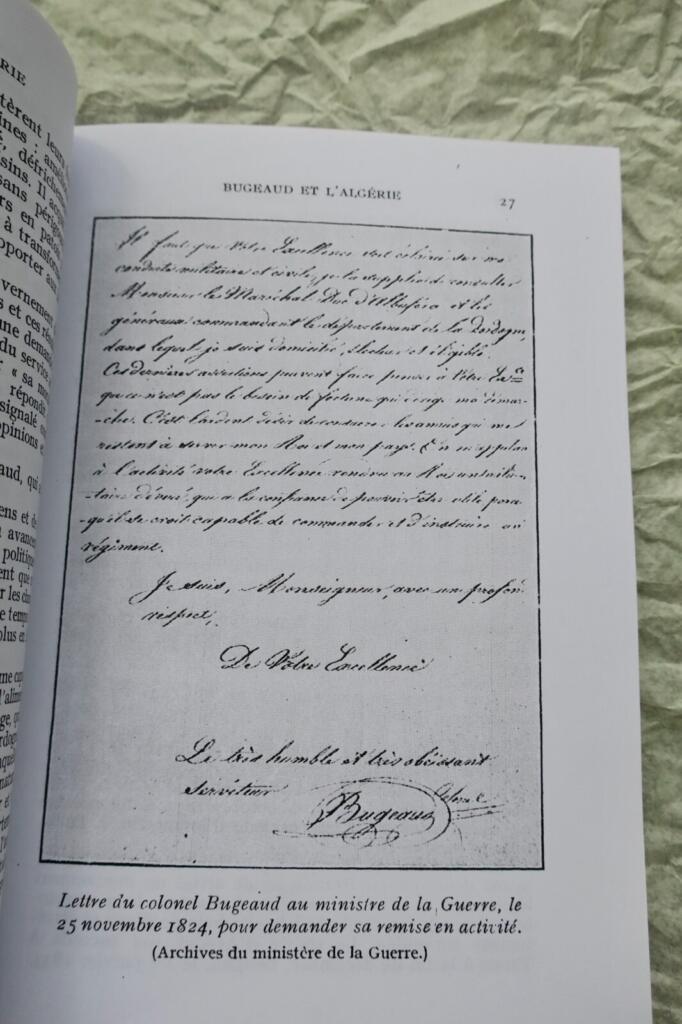 RIE
tèrent leurs
ines : amé
, défrichem
sins. Il acq
sans périg
rs en pato
à transfor
pporter au
vernement
s et ces ré
une deman
du service
« sa mo
répondit
signalé
opinions e
aud, qui
ens et d
avance
politiqu
ent que
r les cl
e temp
plus e
me cu
l'alim
ge, q
rdog
quel
BUGEAUD ET L'ALGÉRIE
27
Il faut que Votre Excellence soit éclairé sur ma
conduite militaire et civile, je la supplie de consulter
Monsieur le Maréchal Duc d'Albuféra et les
généraux commandant le département de la Dordogne,
dans lequel je suis domicilié, Electeur et éligible.
Ces dernières assertions peuvent faire penser à Votre Exce
que ce n'est pas le besoin de fortune qui dirige ma démar-
-che. C'est l'ardent désir de consacrer les années qui me
restent à servir mon Roi et mon pays. En m'appelant
à l'activité votre Excellence rendra au Roi un mili-
-taire dévoué, qui a la confiance de pouvoir être utile parce
qu'il se croit capable de commander et d'instruire un
régiment.
Je suis, Monseigneur, avec un profond
respect,
De Votre Excellence
Le très humble et très obéissant
serviteur
Bugeaud
Lettre du colonel Bugeaud au ministre de la Guerre, le
25 novembre 1824, pour demander sa remise en activité.
(Archives du ministère de la Guerre.)